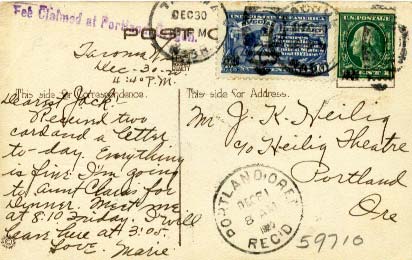 Fee Claimed at Portland,
DEC 30
POST C
Tacoma, Wn
Dec-30-
4:40 P.M.
This side for Correspondence.
Dearest Jack:
Received two
cards and a letter
to-day. Everything
is fine. I'm going
to Aunt Clara's for
dinner. Meet me
at 8:10 Friday. I will
leave here at 3:05.
Love. Marie
This side for Address.
Mr. J. K. Heilig
c/o Heilig Theatre
Portland
Ore
PORTLAND, OREG.
DEC 31
8 AM
REC'D
59710